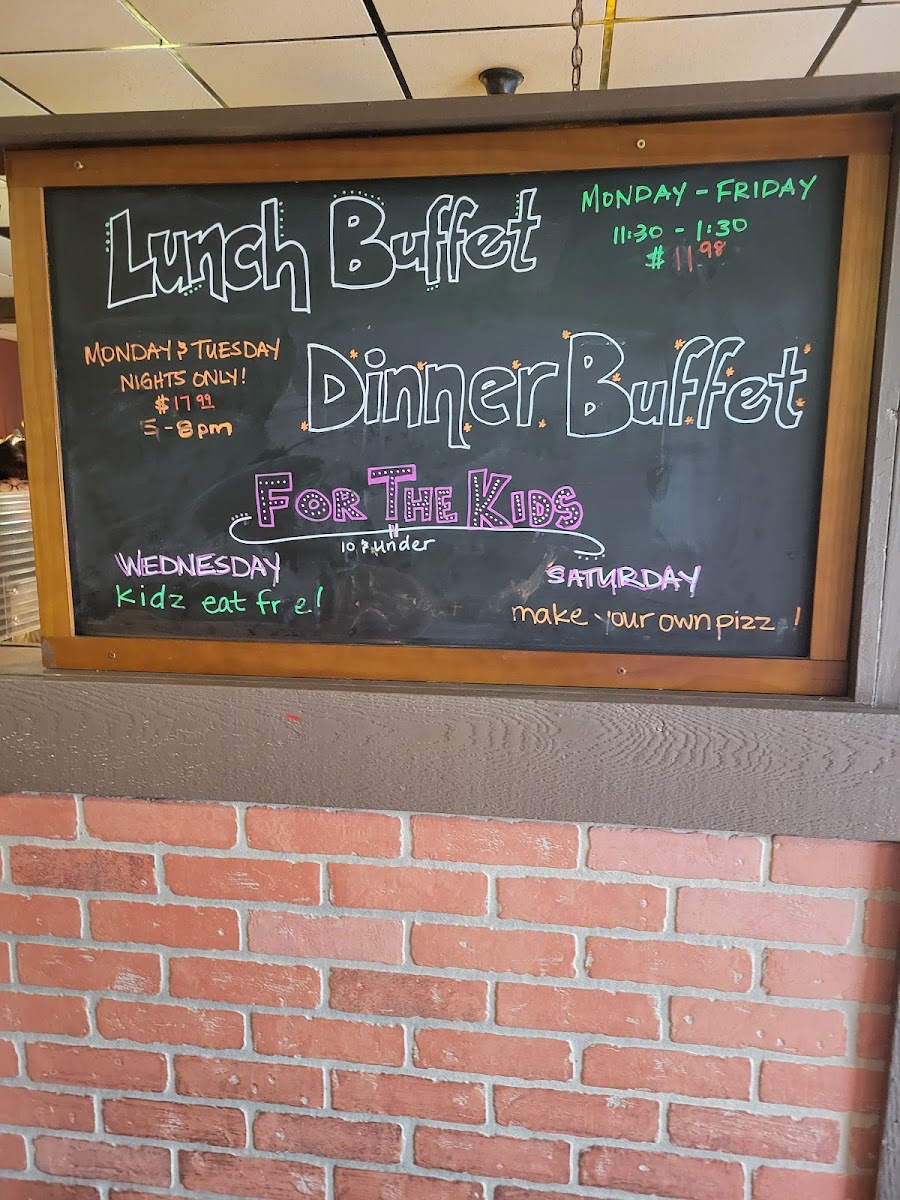 Lunch Buffet
MONDAY - FRIDAY
11:30 - 1:30
$11.98
MONDAY & TUESDAY
NIGHTS ONLY!
$17.99
5-8pm
Dinner Buffet
FOR THE KIDS
10 & under
WEDNESDAY
kidz eat fr e!
SATURDAY
make your own pizz !